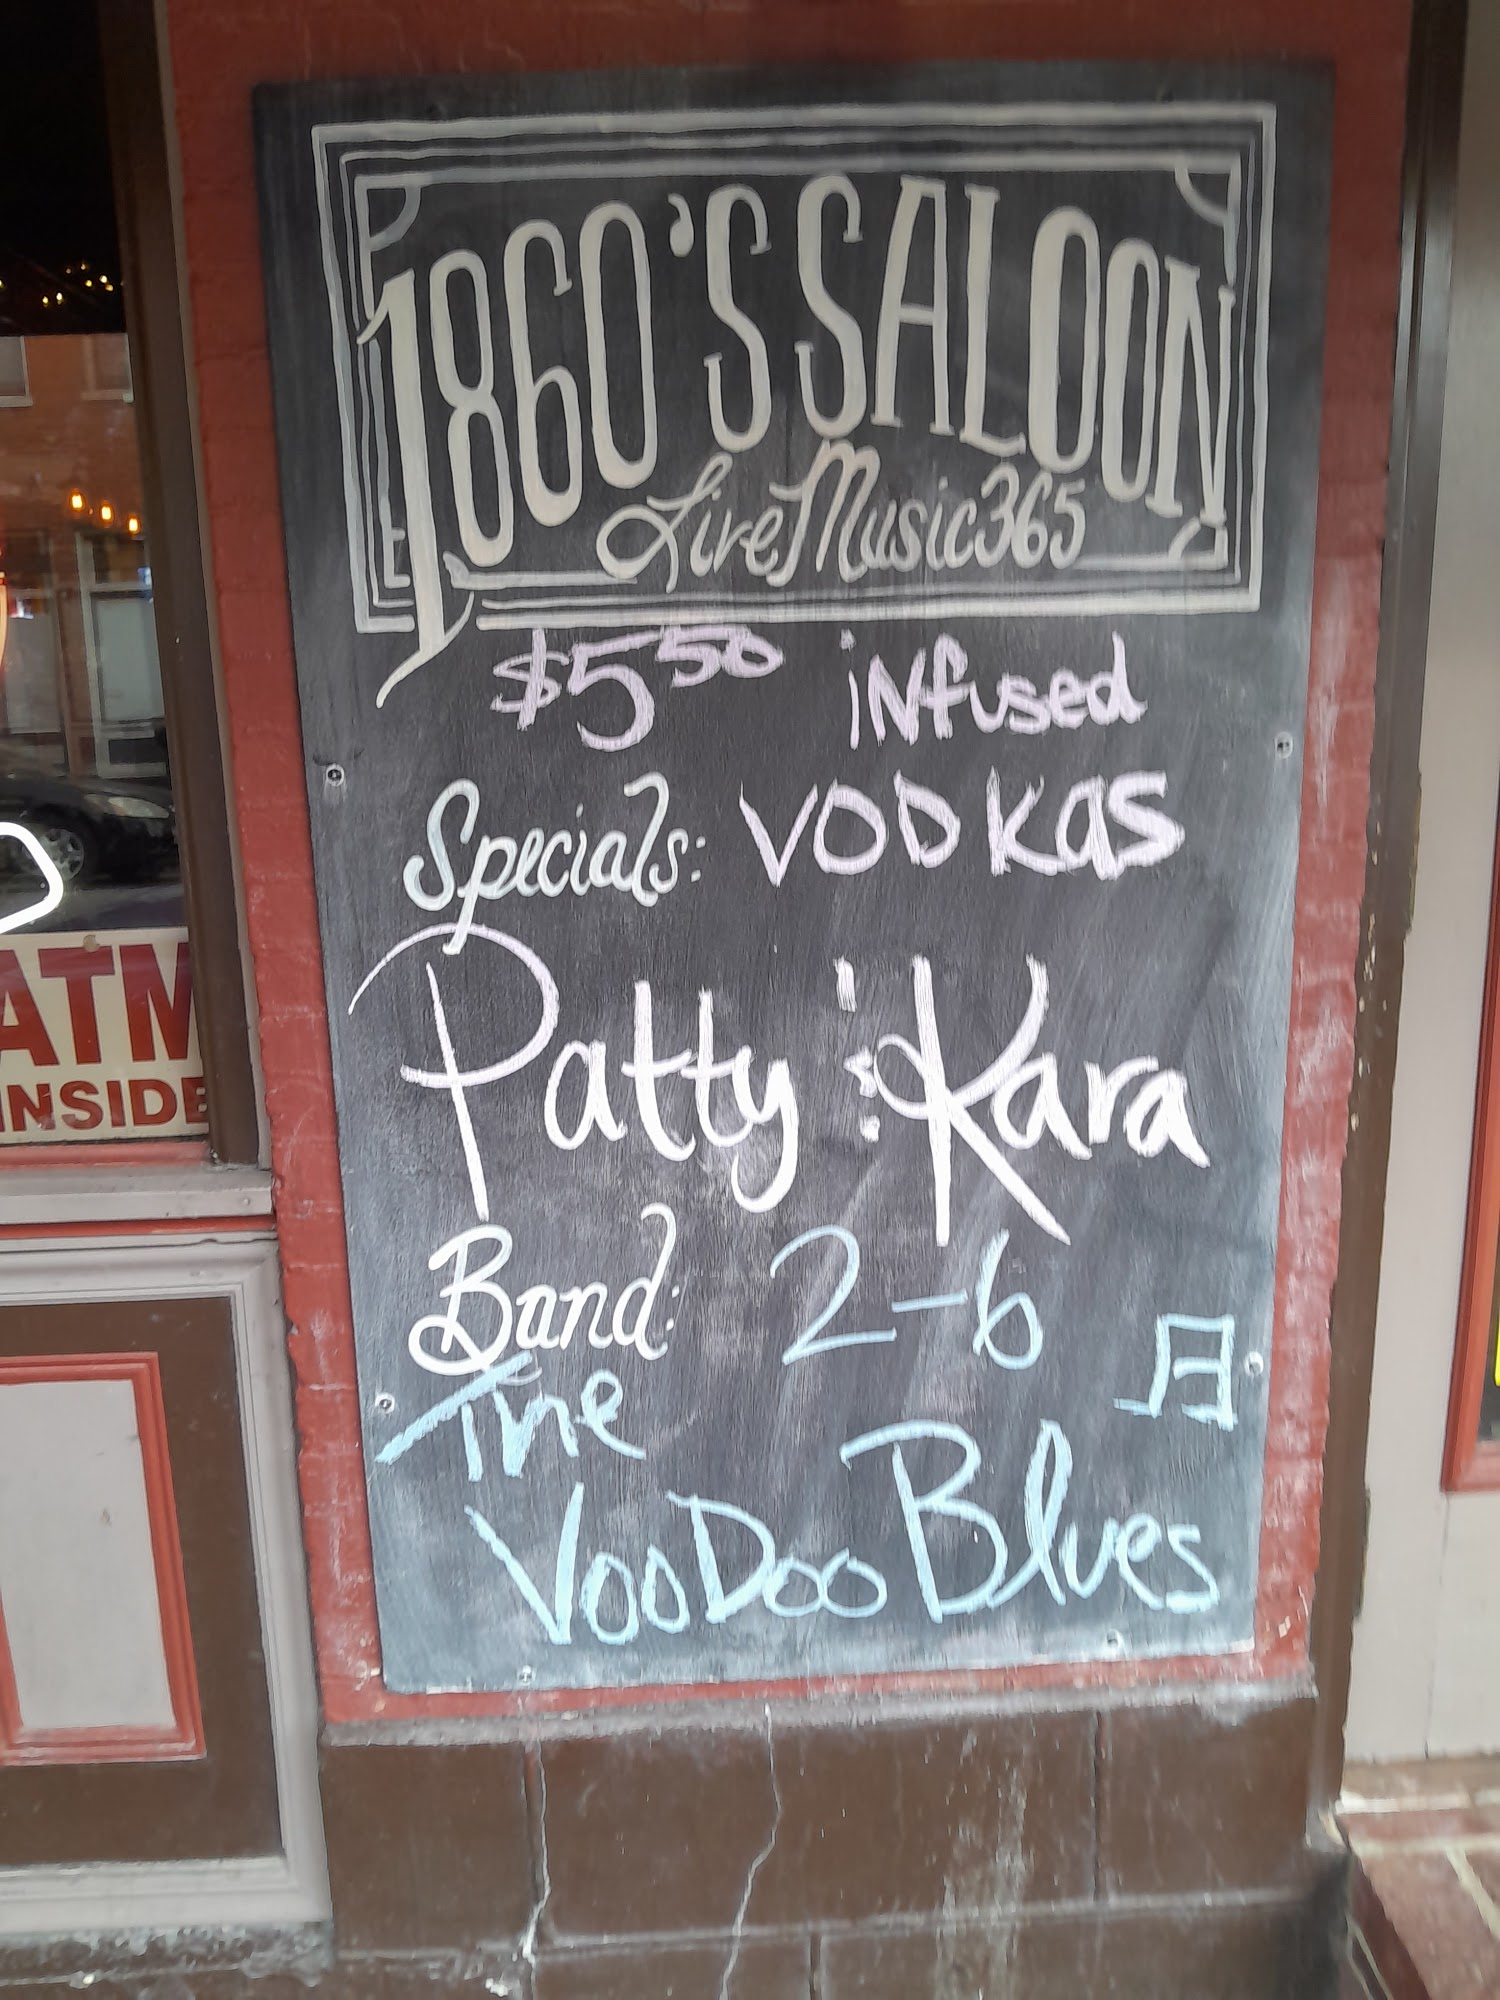 1860'S SALOON
Live Music 365
$5.50 infused
Specials: VODKas
Patty & Kara
Band: 2-6
The
VooDoo Blues
ATM
INSIDE